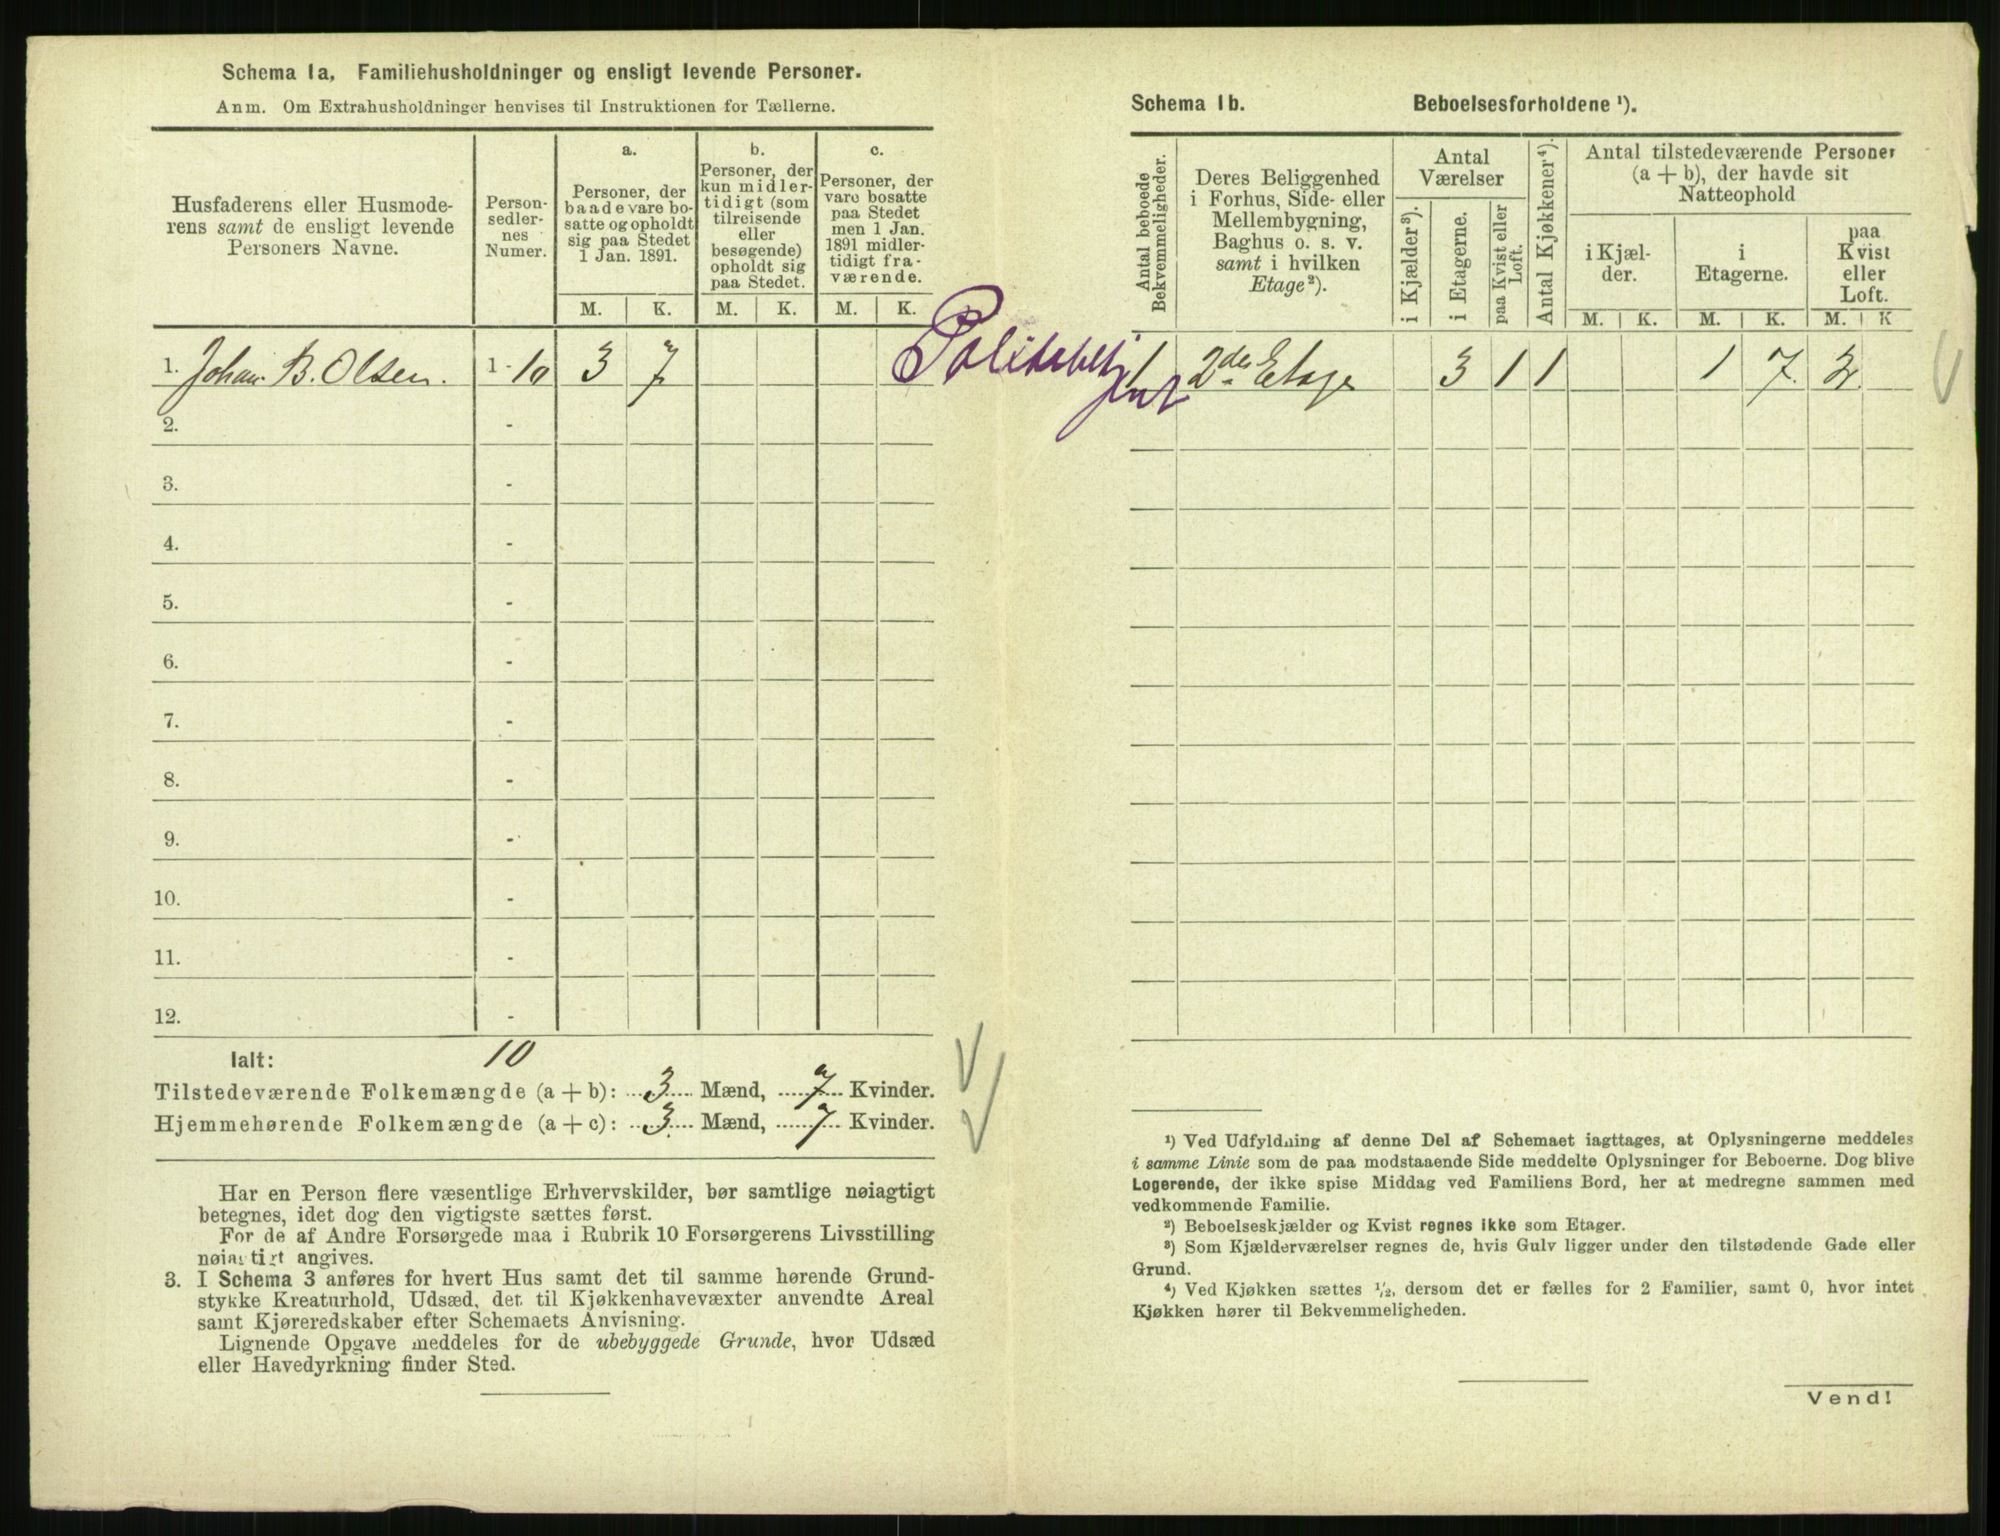 Schema 1a, Familiehusholdninger og ensligt levende Personer.
Anm. Om Extrahusholdninger henvises til Instruktionen for Tællerne.
Husfaderens eller Husmode-
rens samt de ensligt levende
Personers Navne.
Person-
sedler-
nes
Numer.
a.
Personer, der
baade vare bo-
satte og opholdt
sig paa Stedet
1 Jan. 1891.
b.
Personer, der
kun midler-
tidigt (som
tilreisende
eller
besøgende)
opholdt sig
paa Stedet.
c.
Personer, der
vare bosatte
paa Stedet
men 1 Jan.
1891 midler-
tidigt fra-
værende.
M. K. M. K. M. K.
1. Johan B. Olsen. 1-10 3 7
2. -
3. -
4. -
5. -
6. -
7. -
8. -
9. -
10. -
11. -
12. -
Ialt: 10
Tilstedeværende Folkemængde (a + b): 3 Mænd, 7 Kvinder.
Hjemmehørende Folkemængde (a + c): 3 Mænd, 7 Kvinder.
Har en Person flere væsentlige Erhvervskilder, bør samtlige nøiagtigt
betegnes, idet dog den vigtigste sættes først.
For de af Andre Forsørgede maa i Rubrik 10 Forsørgerens Livsstilling
nøiagtigt angives.
3. I Schema 3 anføres for hvert Hus samt det til samme hørende Grund-
stykke Kreaturhold, Udsæd, det til Kjøkkenhavevæxter anvendte Areal
samt Kjøreredskaber efter Schemaets Anvisning.
Lignende Opgave meddeles for de ubebyggede Grunde, hvor Udsæd
eller Havedyrkning finder Sted.
Schema 1b. Beboelsesforholdene ¹).
Antal beboede
Bekvemmeligheder.
Deres Beliggenhed
i Forhus, Side- eller
Mellembygning,
Baghus o. s. v.
samt i hvilken
Etage ²).
Antal
Værelser
i Kjælder ³).
i Etagerne.
paa Kvist eller
Loft.
Antal Kjøkkener ⁴).
Antal tilstedeværende Personer
(a + b), der havde sit
Natteophold
i Kjæl-
der.
i
Etagerne.
paa
Kvist
eller
Loft.
M. K. M. K. M. K
1 2den Etage 3 1 1 1 7. 2
¹) Ved Udfyldning af denne Del af Schemaet iagttages, at Oplysningerne meddeles
i samme Linie som de paa modstaaende Side meddelte Oplysninger for Beboerne. Dog blive
Logerende, der ikke spise Middag ved Familiens Bord, her at medregne sammen med
vedkommende Familie.
²) Beboelseskjælder og Kvist regnes ikke som Etager.
³) Som Kjælderværelser regnes de, hvis Gulv ligger under den tilstødende Gade eller
Grund.
⁴) Ved Kjøkken sættes ½, dersom det er fælles for 2 Familier, samt 0, hvor intet
Kjøkken hører til Bekvemmeligheden.
Vend!